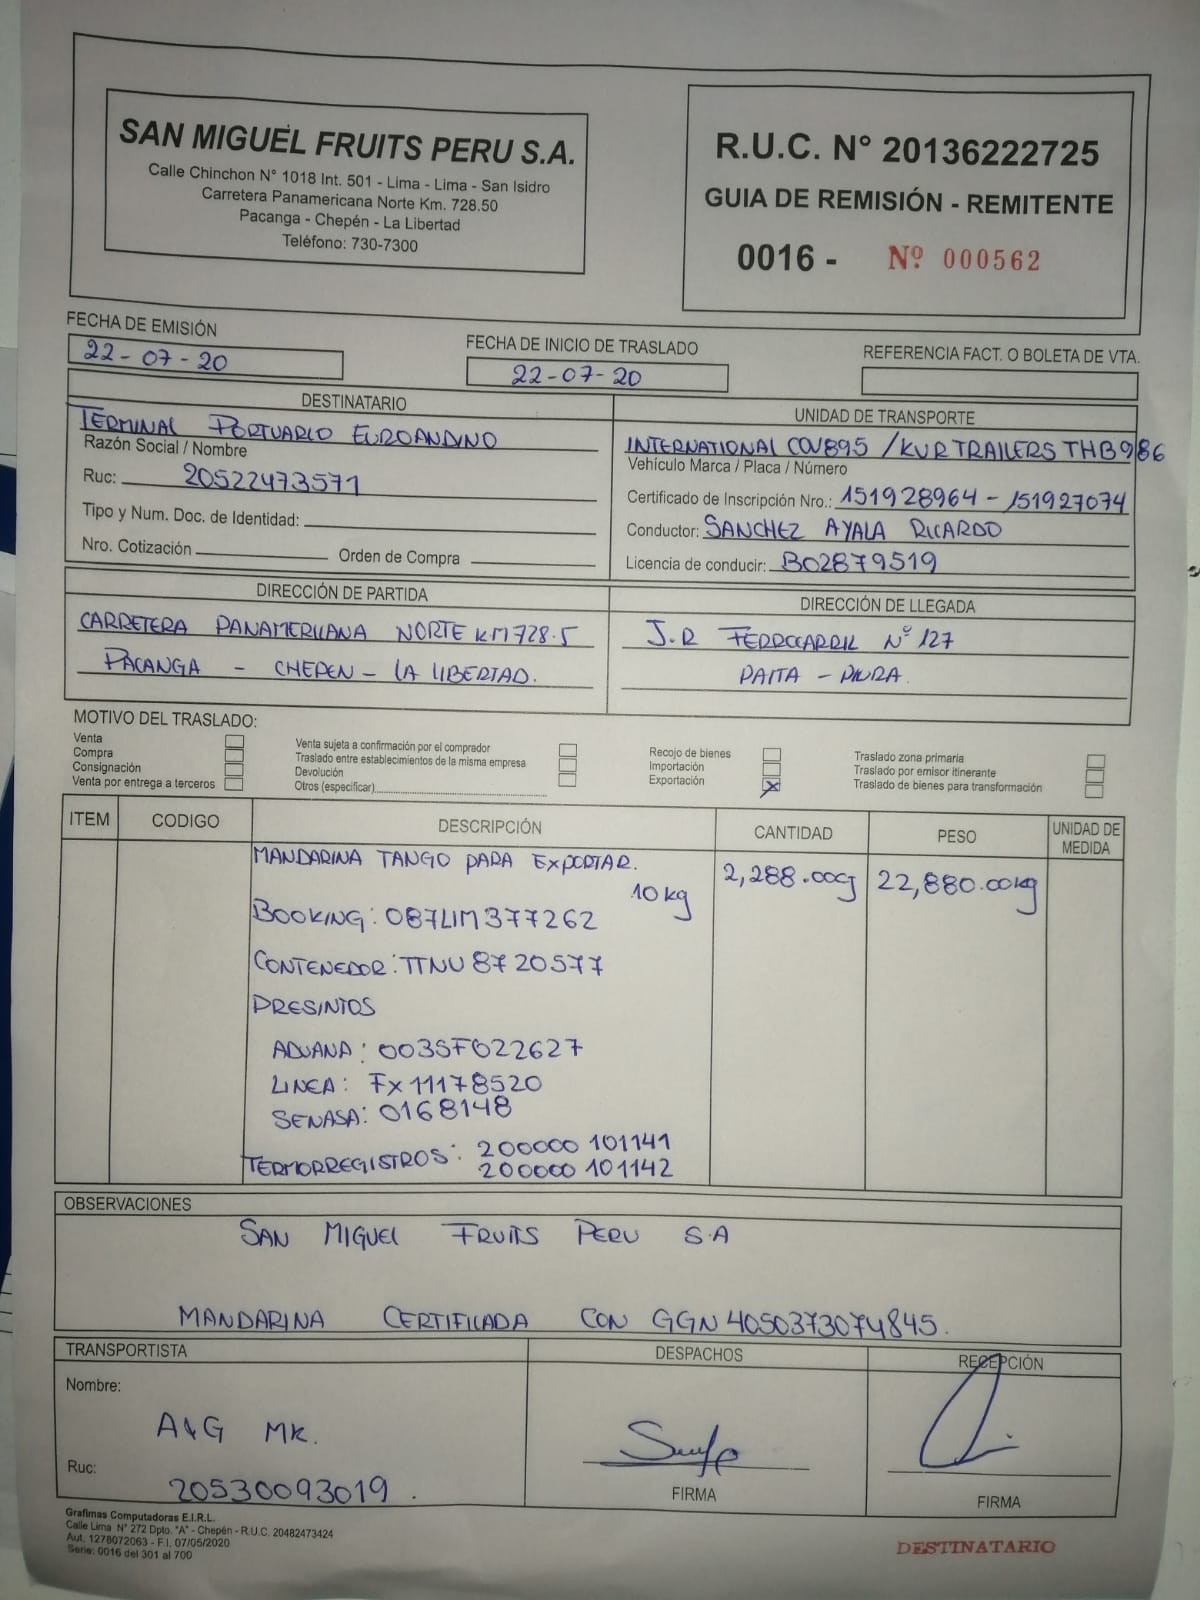 SAN MIGUEL FRUITS PERU S.A.
Calle Chinchon N° 1018 Int. 501 - Lima - Lima - San Isidro
Carretera Panamericana Norte Km. 728.50
Pacanga - Chepén - La Libertad
Teléfono: 730-7300
R.U.C. N° 20136222725
GUIA DE REMISIÓN - REMITENTE
0016 - Nº 000562
FECHA DE EMISIÓN
22-07-20
FECHA DE INICIO DE TRASLADO
22-07-20
REFERENCIA FACT. O BOLETA DE VTA.
DESTINATARIO
TERMINAL PORTUARIO EUROANDINO
Razón Social / Nombre
Ruc: 20522473571
Tipo y Num. Doc. de Identidad:
Nro. Cotización Orden de Compra
UNIDAD DE TRANSPORTE
INTERNATIONAL COV895 / KUR TRAILERS THB986
Vehículo Marca / Placa / Número
Certificado de Inscripción Nro.: 151928964 - 151927074
Conductor: SANCHEZ AYALA RICARDO
Licencia de conducir: B02879519
DIRECCIÓN DE PARTIDA
CARRETERA PANAMERICANA NORTE KM 728.5
PACANGA - CHEPEN - LA LIBERTAD.
DIRECCIÓN DE LLEGADA
J.R FERROCARRIL N° 127
PAITA - PIURA.
MOTIVO DEL TRASLADO:
Venta
Compra
Consignación
Venta por entrega a terceros
Venta sujeta a confirmación por el comprador
Traslado entre establecimientos de la misma empresa
Devolución
Otros (especificar)
Recojo de bienes
Importación
Exportación X
Traslado zona primaria
Traslado por emisor itinerante
Traslado de bienes para transformación
ITEM CODIGO DESCRIPCIÓN CANTIDAD PESO UNIDAD DE MEDIDA
MANDARINA TANGO PARA EXPORTAR. 2,288.00CJ 22,880.00kg
10 kg
BOOKING: 087LIM377262
CONTENEDOR: TTNU 8720577
PRESINTOS
ADUANA: 003SF022627
LINEA: FX11178520
SENASA: 0168148
TERMORREGISTROS: 200000 101141
200000 101142
OBSERVACIONES
SAN MIGUEL FRUITS PERU S.A
MANDARINA CERTIFICADA CON GGN 4050373074845.
TRANSPORTISTA
Nombre:
A&G MK.
Ruc:
20530093019.
DESPACHOS
FIRMA
RECEPCIÓN
FIRMA
Grafimas Computadoras E.I.R.L.
Calle Lima N° 272 Dpto. "A" - Chepén - R.U.C. 20482473424
Aut. 1278072063 - F.I. 07/05/2020
Serie: 0016 del 301 al 700
DESTINATARIO